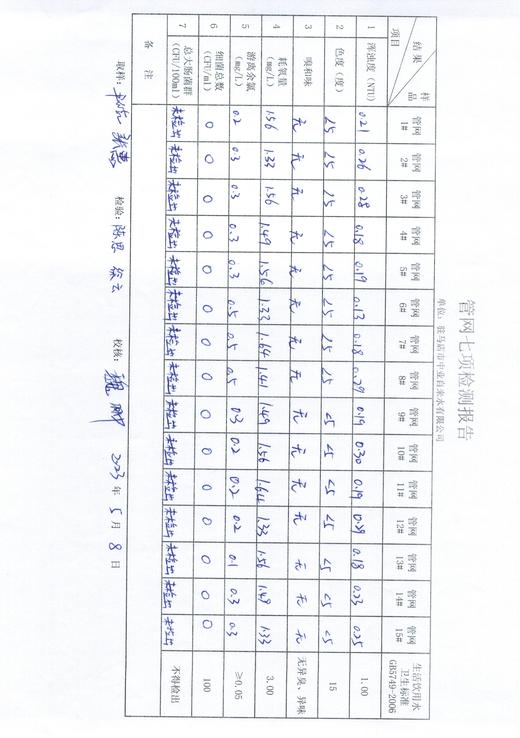 管网七项检测报告
单位：驻马店市中业自来水有限公司
样品 结果 项目 管网1# 管网2# 管网3# 管网4# 管网5# 管网6# 管网7# 管网8# 管网9# 管网10# 管网11# 管网12# 管网13# 管网14# 管网15# 生活饮用水卫生标准GB5749-2006
1 浑浊度（NTU） 0.21 0.26 0.28 0.18 0.19 0.13 0.18 0.29 0.19 0.30 0.19 0.29 0.18 0.23 0.25 1.00
2 色度（度） <5 <5 <5 <5 <5 <5 <5 <5 <5 <5 <5 <5 <5 <5 <5 15
3 嗅和味 无 无 无 无 无 无 无 无 无 无 无 无 无 无 无 无异臭、异味
4 耗氧量（mg/L） 1.56 1.33 1.56 1.49 1.56 1.33 1.64 1.41 1.49 1.56 1.64 1.33 1.56 1.49 1.33 3.00
5 游离余氯（mg/L） 0.2 0.3 0.3 0.3 0.3 0.5 0.5 0.5 0.3 0.2 0.2 0.2 0.1 0.3 0.3 ≥0.05
6 细菌总数（CFU/ml） 0 0 0 0 0 0 0 0 0 0 0 0 0 0 0 100
7 总大肠菌群（CFU/100ml） 未检出 未检出 未检出 未检出 未检出 未检出 未检出 未检出 未检出 未检出 未检出 未检出 未检出 未检出 未检出 不得检出
备 注
取样： 检验：陈思 徐云 校核： 2023年5月8日